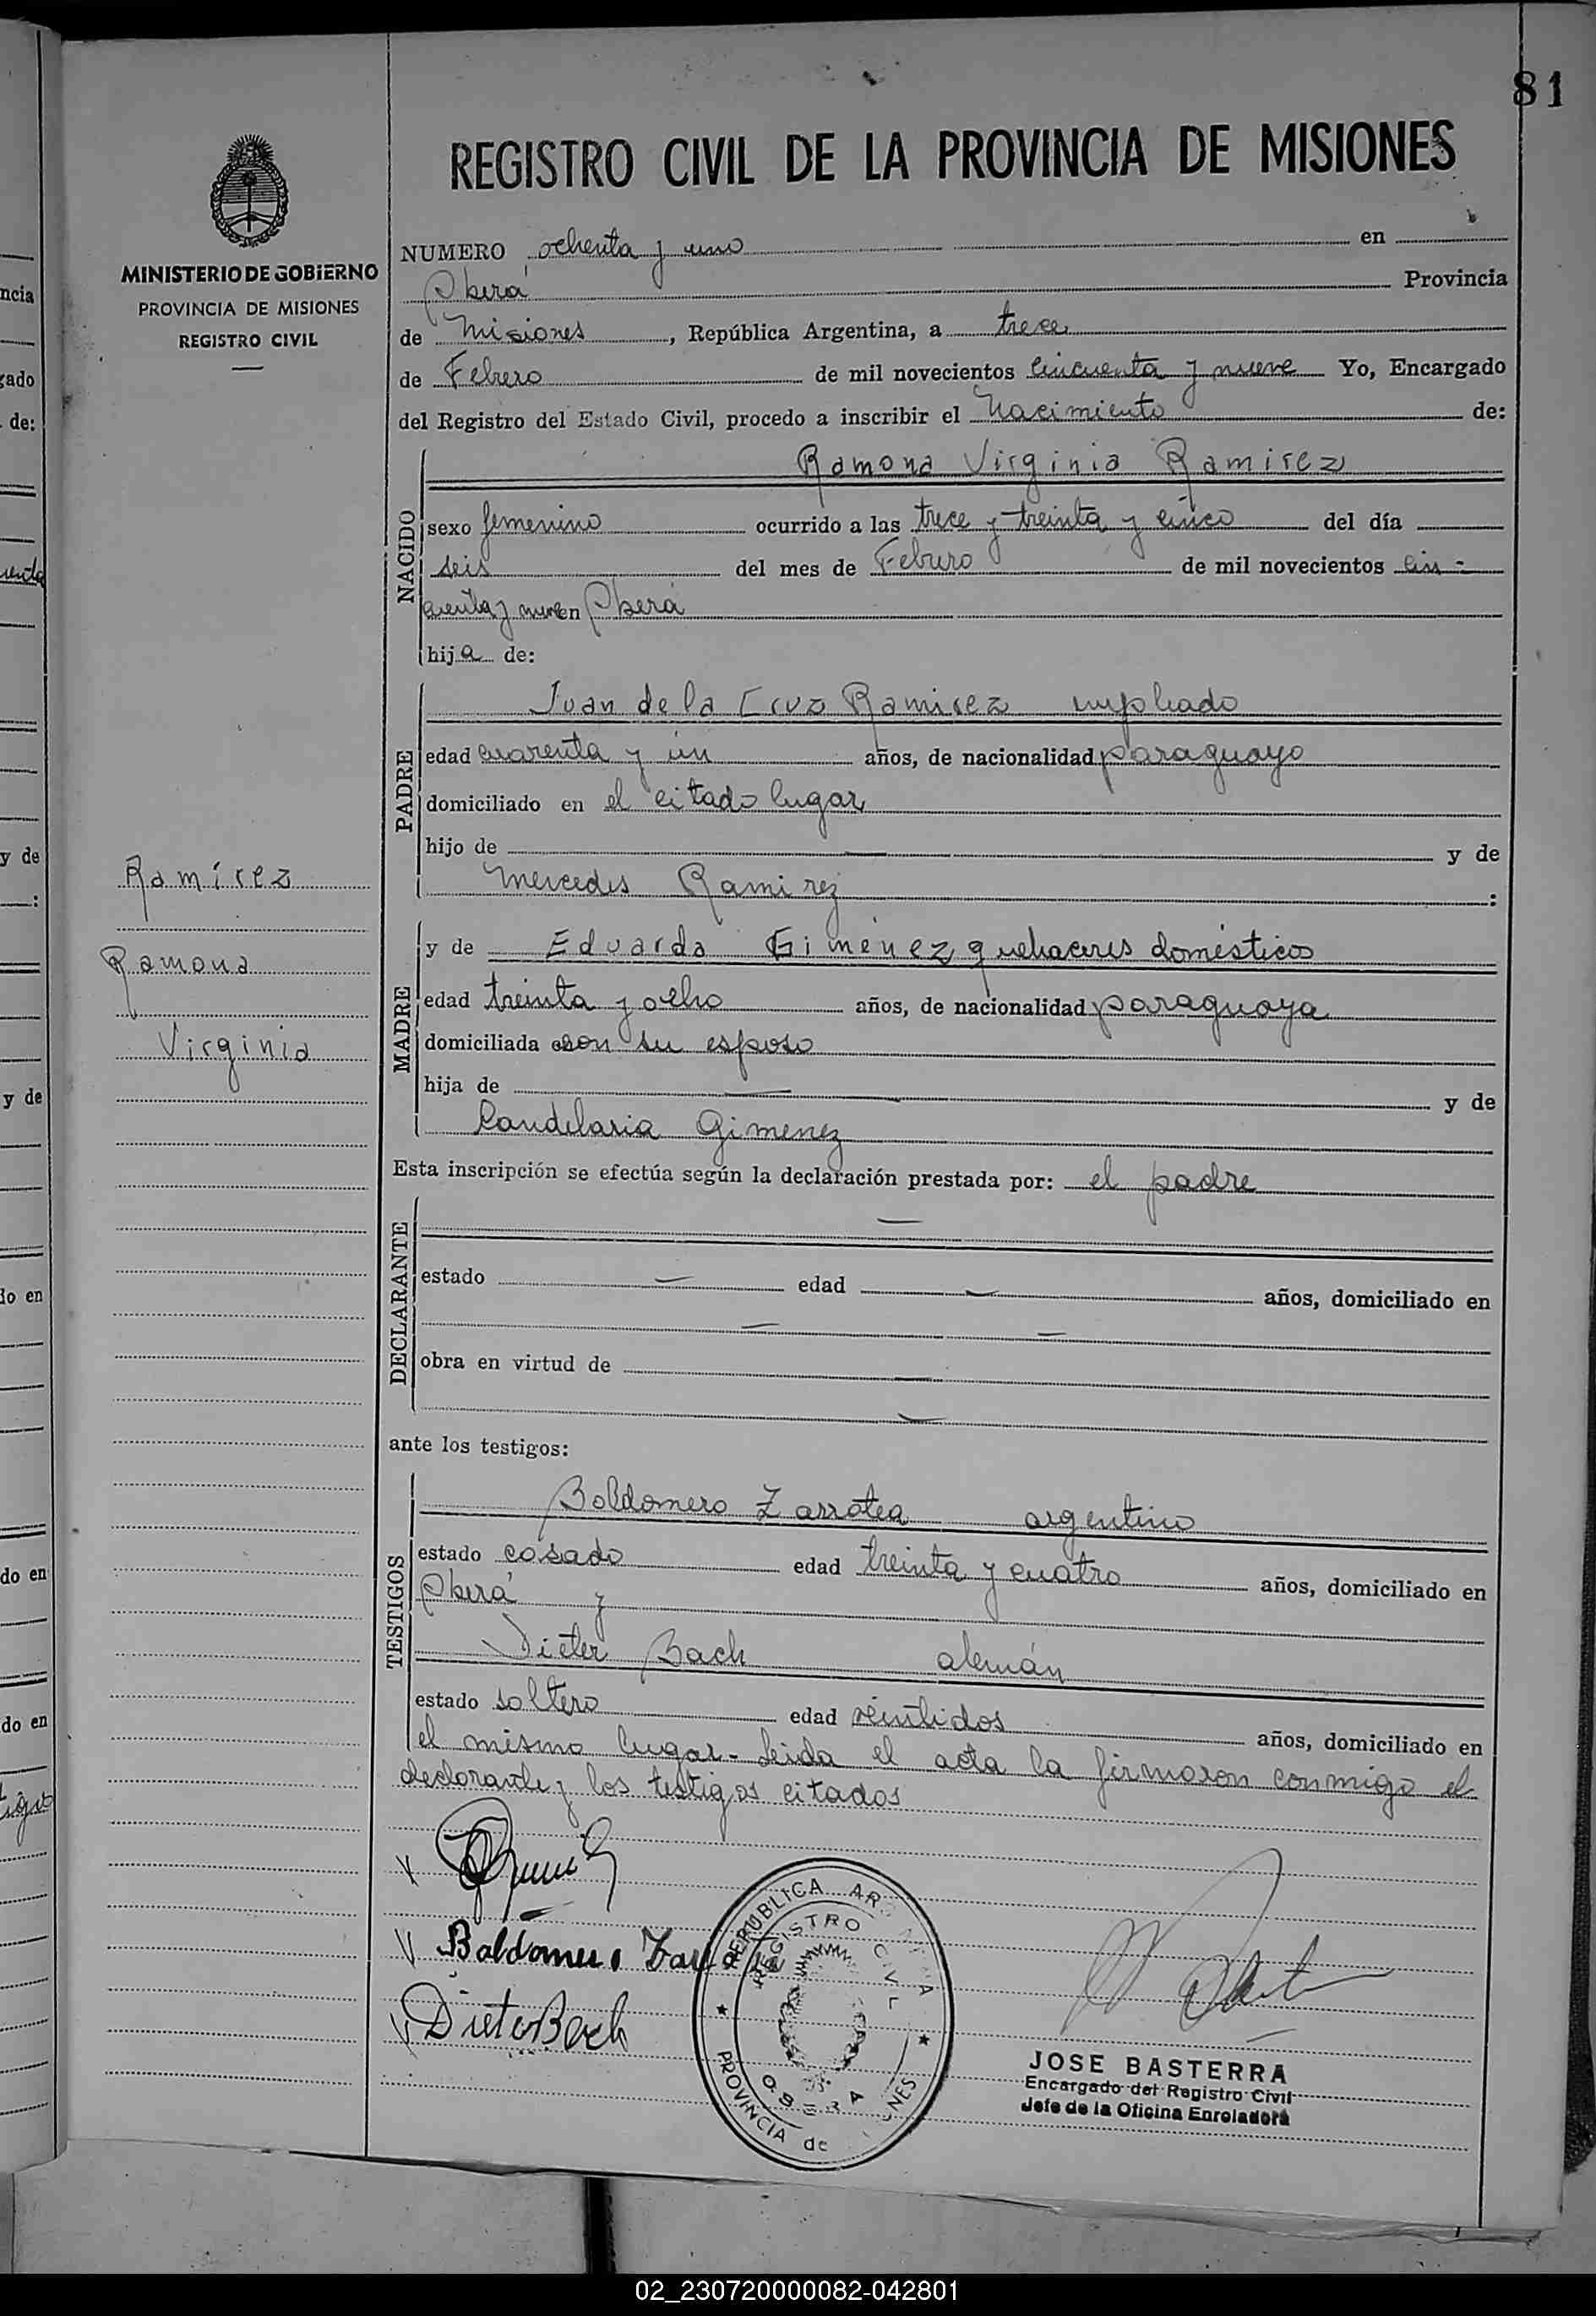 81
REGISTRO CIVIL DE LA PROVINCIA DE MISIONES
MINISTERIO DE GOBIERNO
PROVINCIA DE MISIONES
REGISTRO CIVIL
NUMERO ochenta y uno en
Oberá Provincia
de Misiones, República Argentina, a trece
de Febrero de mil novecientos cincuenta y nueve Yo, Encargado
del Registro del Estado Civil, procedo a inscribir el Nacimiento de:
NACIDO
Ramona Virginia Ramirez
sexo femenino ocurrido a las trece y treinta y cinco del día
seis del mes de Febrero de mil novecientos cin-
cuenta y nueve en Oberá
hija de:
PADRE
Juan de la Cruz Ramirez empleado
edad cuarenta y un años, de nacionalidad paraguayo
domiciliado en el citado lugar
hijo de — y de
Mercedes Ramirez :
Ramírez
Ramona
Virginia
MADRE
y de Eduarda Gimenez quehaceres domésticos
edad treinta y ocho años, de nacionalidad paraguaya
domiciliada con su esposo
hija de — y de
Candelaria Gimenez
Esta inscripción se efectúa según la declaración prestada por: el padre
DECLARANTE
—
estado — edad — años, domiciliado en
— —
obra en virtud de —
—
ante los testigos:
TESTIGOS
Baldomero Zarratea argentino
estado casado edad treinta y cuatro años, domiciliado en
Oberá y
Dieter Bach alemán
estado soltero edad veintidos años, domiciliado en
el mismo lugar- Leida el acta la firmaron conmigo el
declarante y los testigos citados
Baldomero
Dieter Bach
REPUBLICA ARGENTINA
REGISTRO CIVIL
OBERA
PROVINCIA de MISIONES
JOSE BASTERRA
Encargado del Registro Civil
Jefe de la Oficina Enroladora
ncia
gado
de:
y de
:
y de
do en
do en
do en
02_230720000082-042801